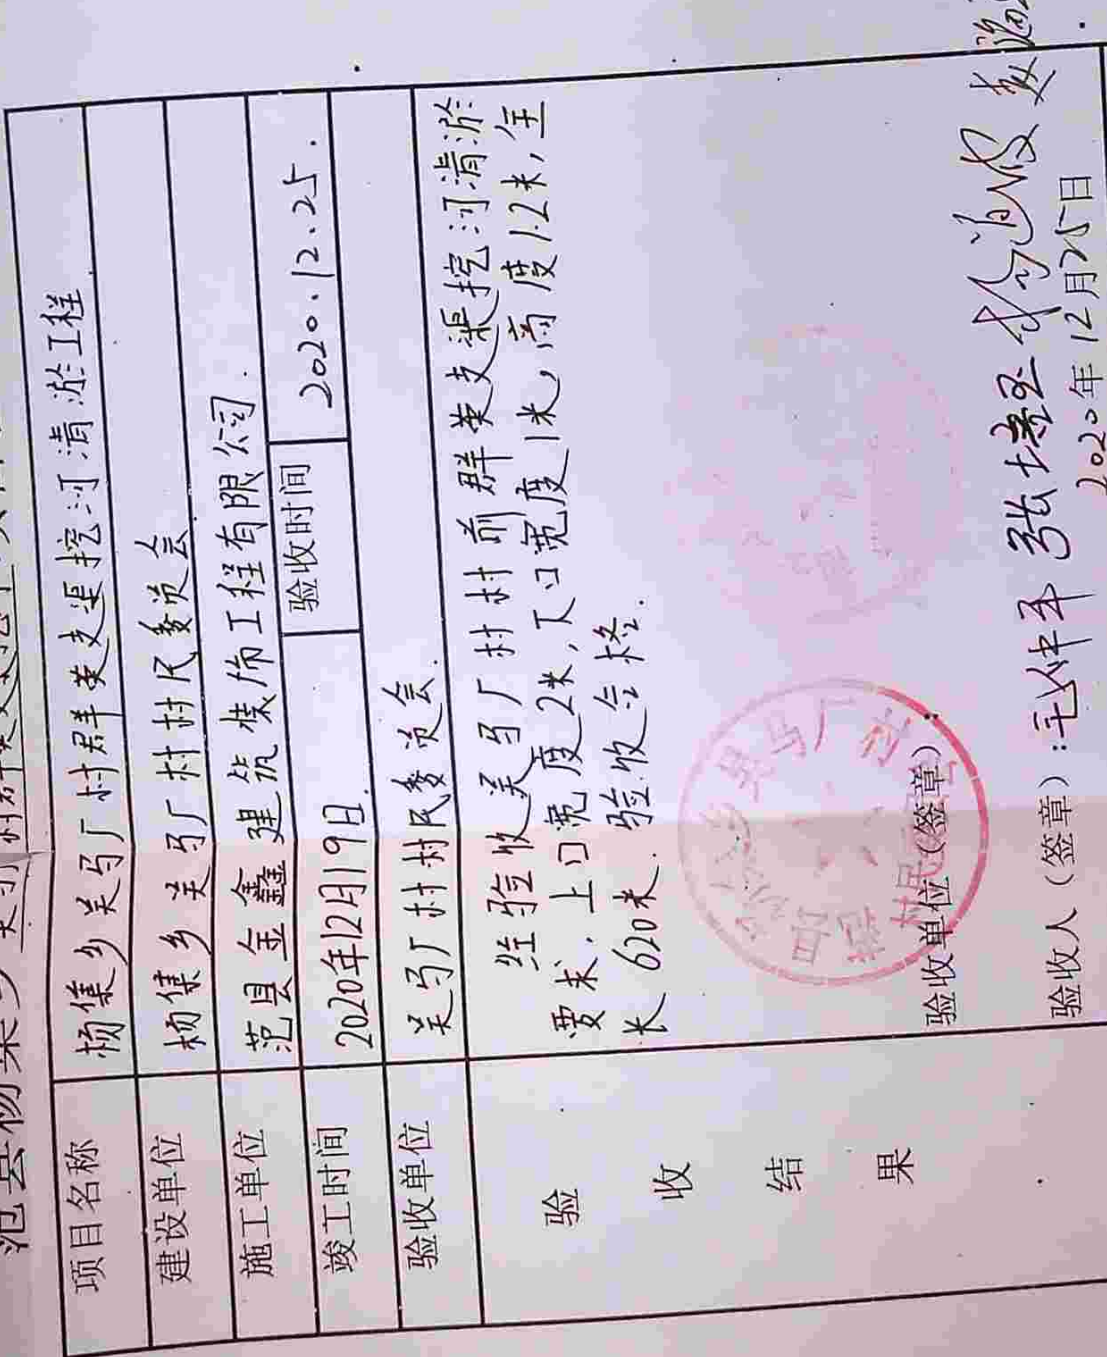 范县杨集乡
项目名称 杨集乡关马厂村群英支渠挖河清淤工程
建设单位 杨集乡关马厂村村民委员会
施工单位 范县金鑫建筑装饰工程有限公司.
竣工时间 2020年12月19日. 验收时间 2020.12.25.
验收单位 关马厂村村民委员会.
验收结果
经验收关马厂村村前群英支渠挖河清淤
要求.上口宽度2米,下口宽度1米,高度1.2米,全
长620米.验收合格.
验收单位(签章):
马厂村
村民
验收人(签章):
2020年12月25日